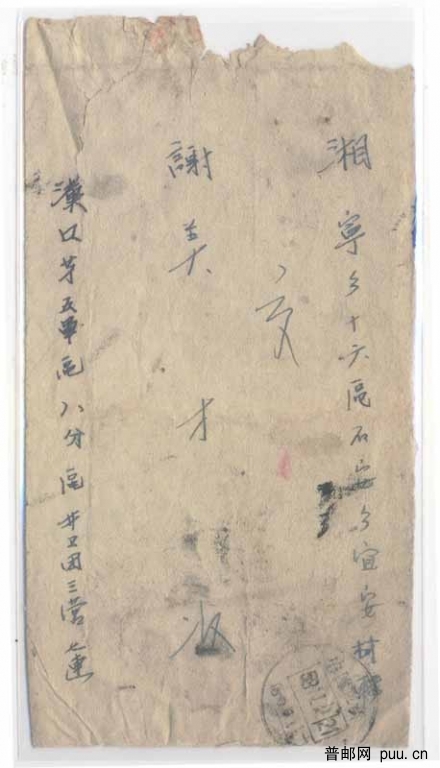 湘 寧乡十六區石
乡宜安村
謝美才 收
漢口第五軍區八分區廿卫团三营七連
普邮网 puu.cn